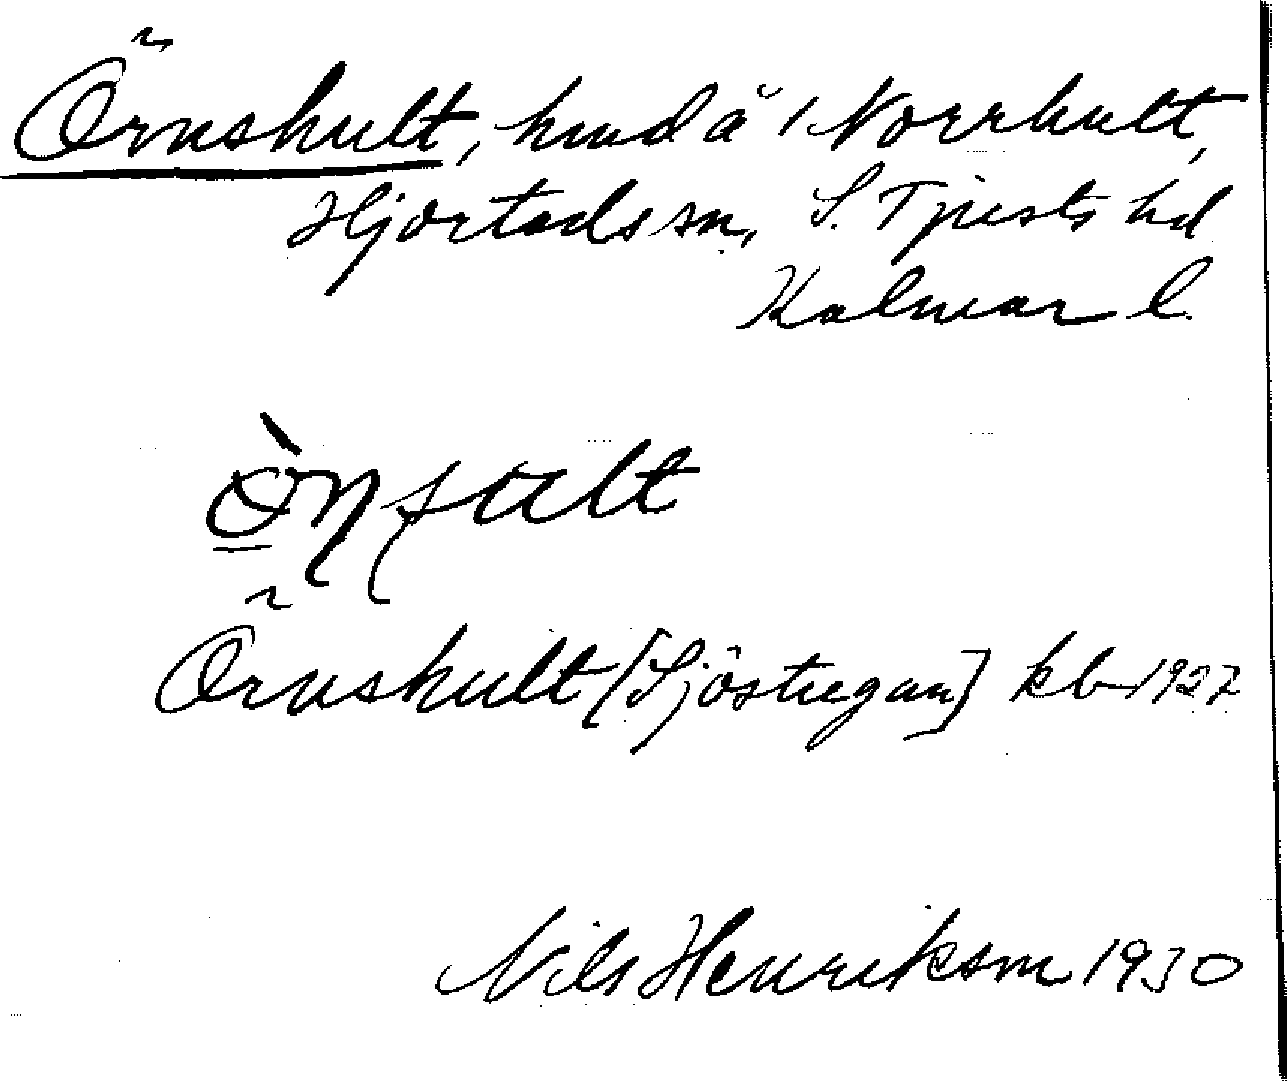 Örnshult, hmd å 1 Norrhult,
Hjorteds sn, S. Tjusts hd
Kalmar l.
Örnshult [Sjöstugan] kb 1927
Nils Henriksm 1930